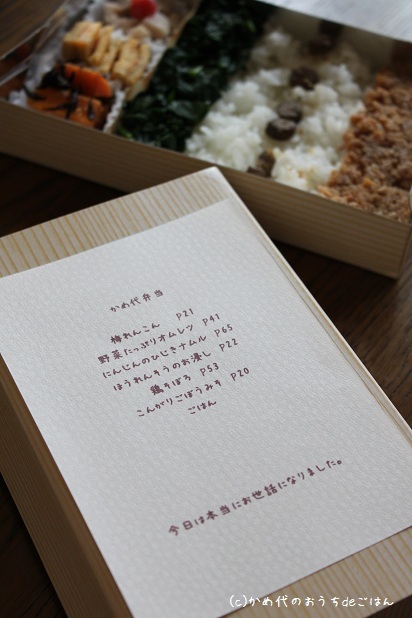 かめ代弁当
梅れんこん P21
野菜たっぷりオムレツ P41
にんじんのひじきナムル P65
ほうれんそうのお浸し P22
鶏そぼろ P53
こんがりごぼうみそ P20
ごはん
今日は本当にお世話になりました。
(c)かめ代のおうちdeごはん